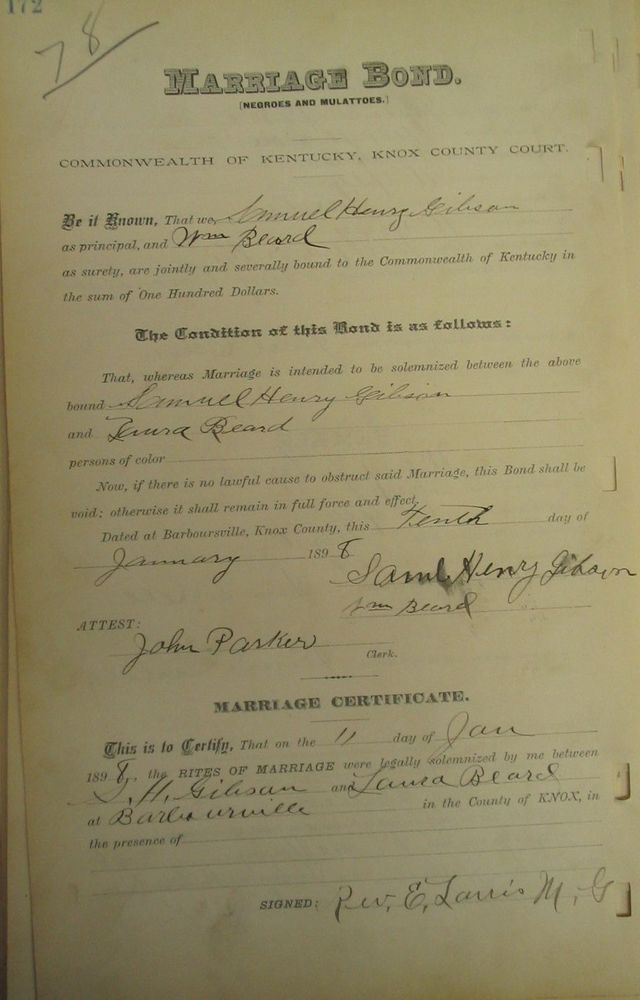 172
78
MARRIAGE BOND.
(NEGROES AND MULATTOES.)
COMMONWEALTH OF KENTUCKY, KNOX COUNTY COURT.
Be it Known, That we, Samuel Henry Gibson
as principal, and Wm Beard
as surety, are jointly and severally bound to the Commonwealth of Kentucky in
the sum of One Hundred Dollars.
The Condition of this Bond is as follows:
That, whereas Marriage is intended to be solemnized between the above
bound Samuel Henry Gibson
and Laura Beard
persons of color
Now, if there is no lawful cause to obstruct said Marriage, this Bond shall be
void; otherwise it shall remain in full force and effect.
Dated at Barboursville, Knox County, this Tenth day of
January 1898
Saml Henry Gibson
Wm Beard
ATTEST:
John Parker Clerk.
MARRIAGE CERTIFICATE.
This is to Certify, That on the 11 day of Jan
1898, the RITES OF MARRIAGE were legally solemnized by me between
S. H. Gibson and Laura Beard
at Barbourville in the County of KNOX, in
the presence of
SIGNED: Rev. E. M. G